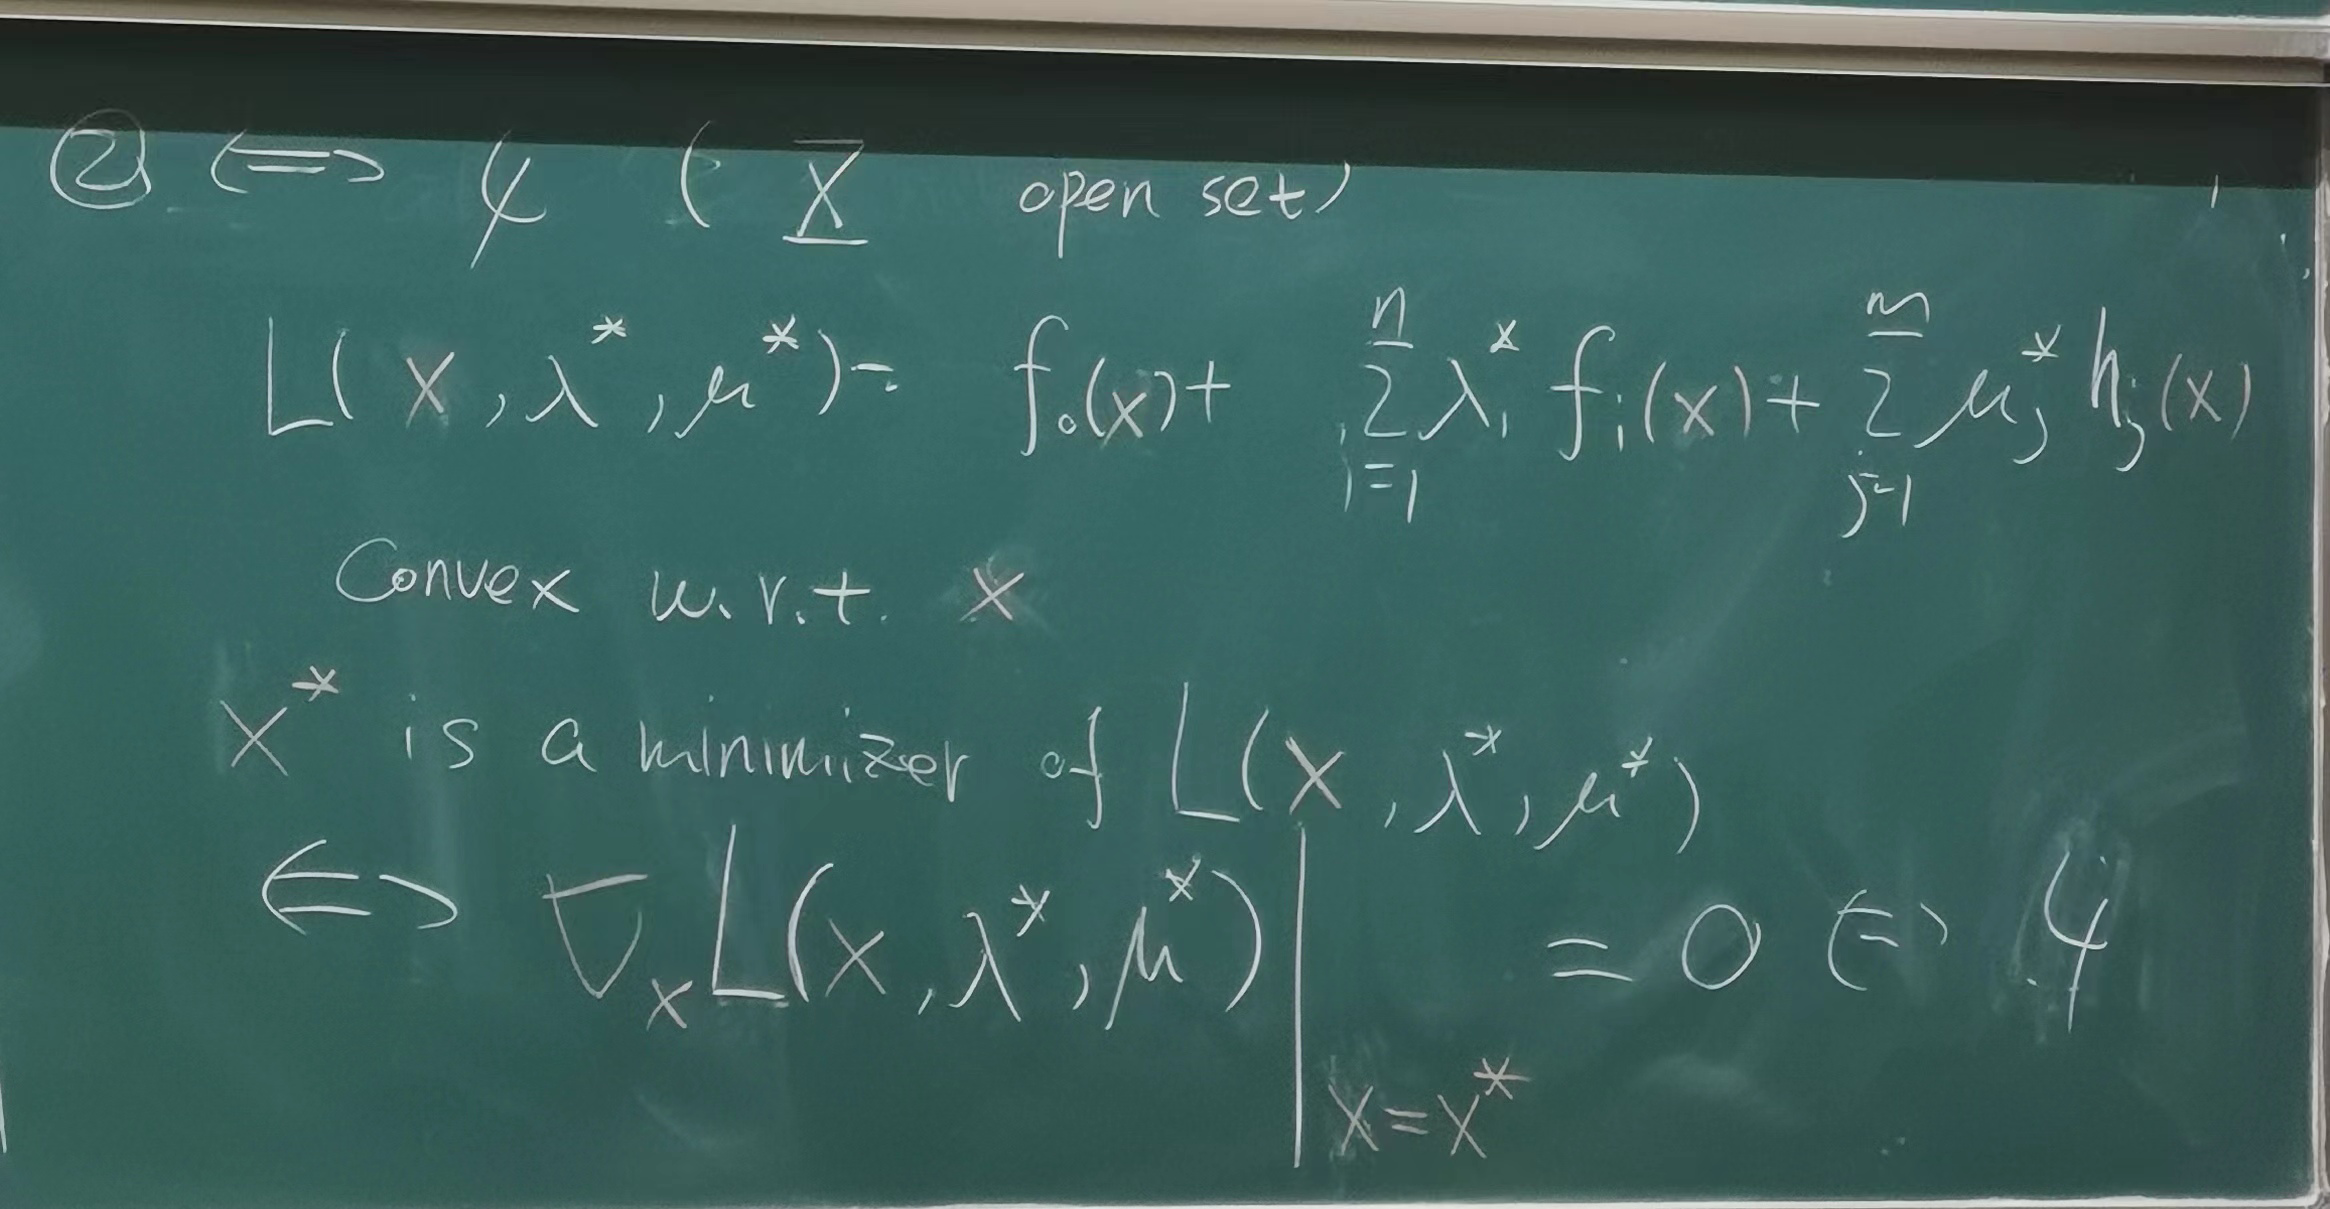 ② ⟺ 4 ( X open set)
L(x, λ*, μ*) = f₀(x) + ∑ᵢ₌₁ⁿ λᵢ* fᵢ(x) + ∑ⱼ₌₁ᵐ μⱼ* hⱼ(x)
Convex w.r.t. x
x* is a minimizer of L(x, λ*, μ*)
⟺ ∇ₓL(x, λ*, μ*) |ₓ₌ₓ* = 0 ⟺ 4